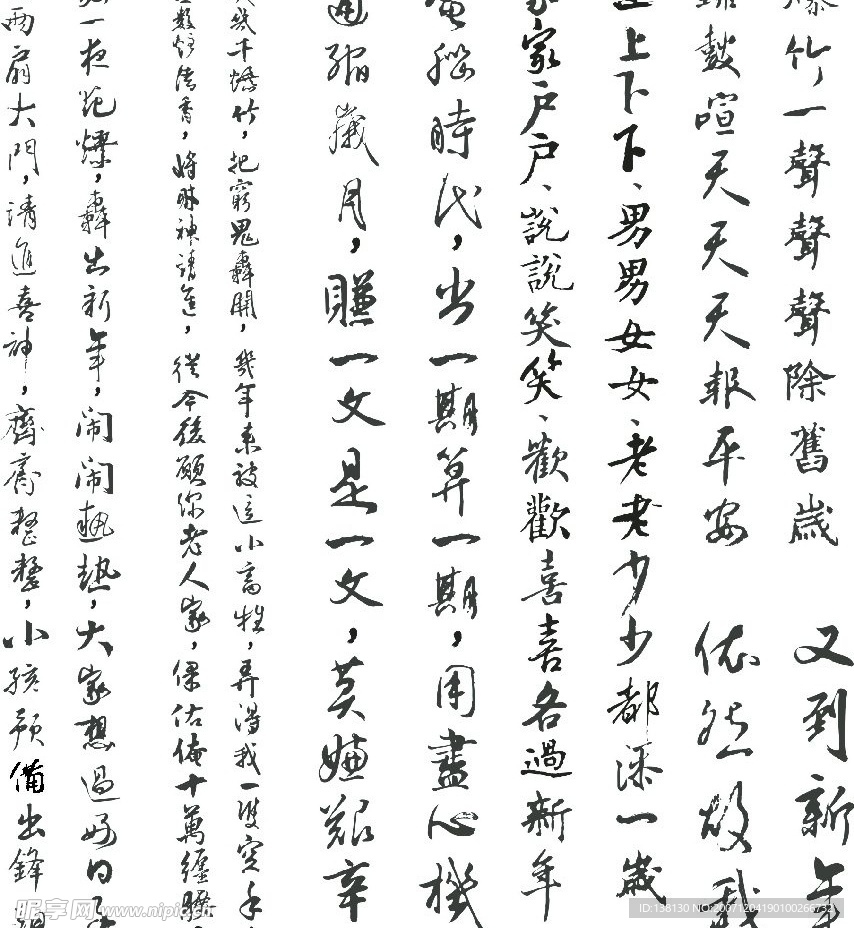 爆竹，一聲聲聲除舊歲
鼓喧天天天報平安
上下下、男男女女、老老少少都添一歲
家戶戶、說說笑笑、歡歡喜喜各過新年
腦時代，出一期算一期，用盡心機
縮歲月，賺一文是一文，莫嫌艱辛
幾千爆竹，把窮鬼轟開，幾年來被這小畜牲，弄得我一雙空手
數炷清香，將財神請進，從今後願你老人家，保佑俺十萬纏腰
一夜花爆，轟出新年，闹闹熱熱，大家想過好日子
兩扇大門，請進喜神，齊齊整整，小孩預備出鋒
又到新年
依然故我
昵享网 www.nipic.cn
ID:138130 NO:20071204190100266732